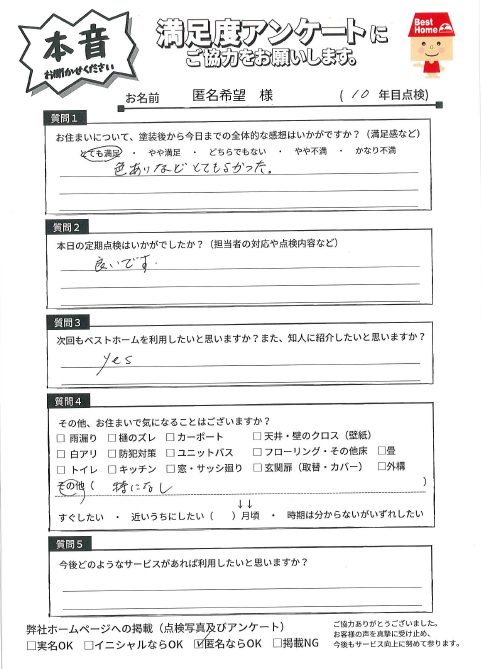 本音
お聞かせください
満足度アンケートに
ご協力をお願いします。
Best Home
お名前 匿名希望 様 (10 年目点検)
質問1
お住まいについて、塗装後から今日までの全体的な感想はいかがですか?(満足感など)
とても満足 ・ やや満足 ・ どちらでもない ・ やや不満 ・ かなり不満
色あいなどとてもよかった。
質問2
本日の定期点検はいかがでしたか?(担当者の対応や点検内容など)
良いです.
質問3
次回もベストホームを利用したいと思いますか?また、知人に紹介したいと思いますか?
yes
質問4
その他、お住まいで気になることはございますか?
□ 雨漏り □ 樋のズレ □ カーポート □ 天井・壁のクロス(壁紙)
□ 白アリ □ 防犯対策 □ ユニットバス □ フローリング・その他床 □畳
□ トイレ □ キッチン □ 窓・サッシ廻り □ 玄関扉(取替・カバー) □外構
その他( 特になし )
↓↓
すぐしたい ・ 近いうちにしたい( )月頃 ・ 時期は分からないがいずれしたい
質問5
今後どのようなサービスがあれば利用したいと思いますか?
弊社ホームページへの掲載(点検写真及びアンケート)
□実名OK □イニシャルならOK ☑匿名ならOK □掲載NG
ご協力ありがとうございました。
お客様の声を真摯に受け止め、
今後もサービス向上に努めて参ります。